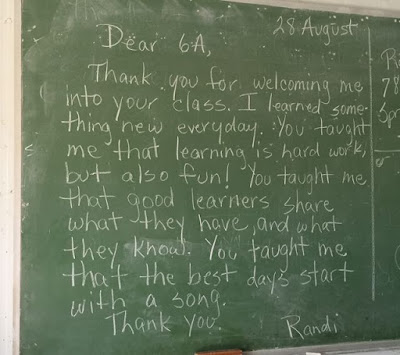 28 August
Dear 6A,
Thank you for welcoming me
into your class. I learned some-
thing new everyday. You taught
me that learning is hard work,
but also fun! You taught me
that good learners share
what they have, and what
they know. You taught me
that the best days start
with a song.
Thank you.
Randi
78
Spr